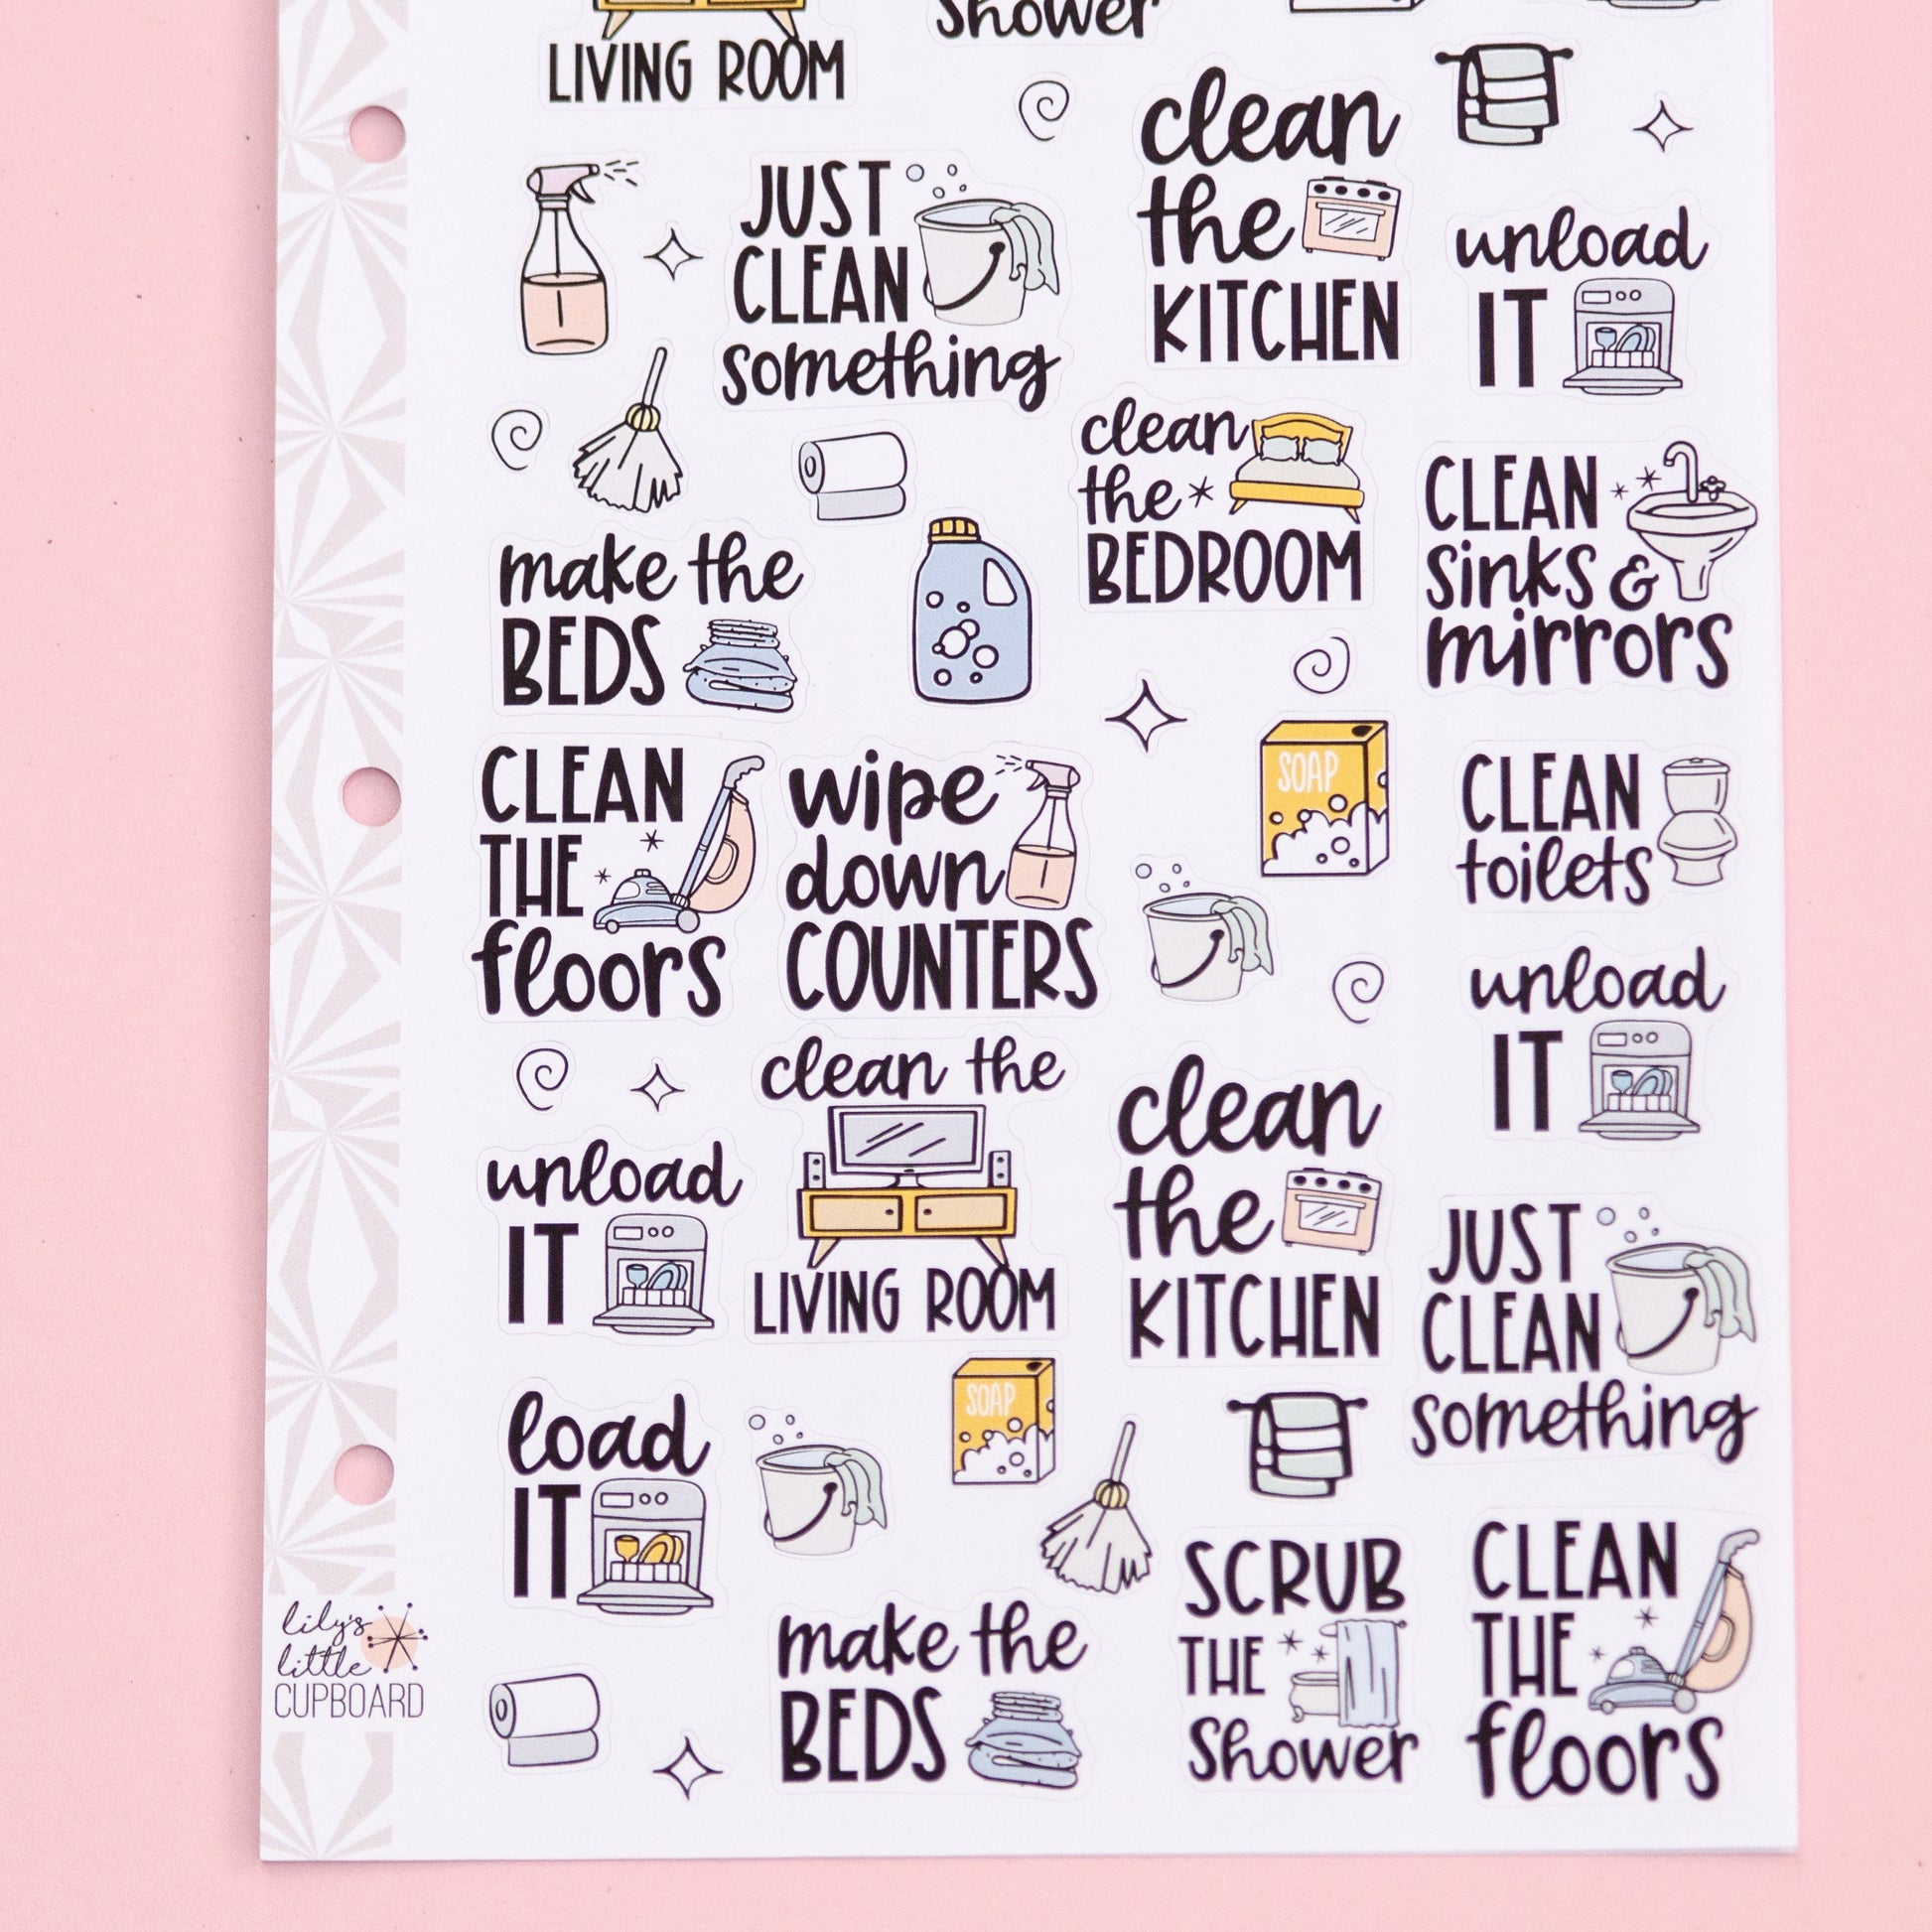 LIVING ROOM
Shower
JUST
CLEAN
something
clean
the
KITCHEN
unload
IT
clean
the
BEDROOM
CLEAN
sinks &
mirrors
make the
BEDS
CLEAN
THE
floors
wipe
down
COUNTERS
SOAP
CLEAN
toilets
unload
IT
unload
IT
clean the
LIVING ROOM
clean
the
KITCHEN
JUST
CLEAN
something
load
IT
SOAP
make the
BEDS
SCRUB
THE
Shower
CLEAN
THE
floors
lily's
little
CUPBOARD